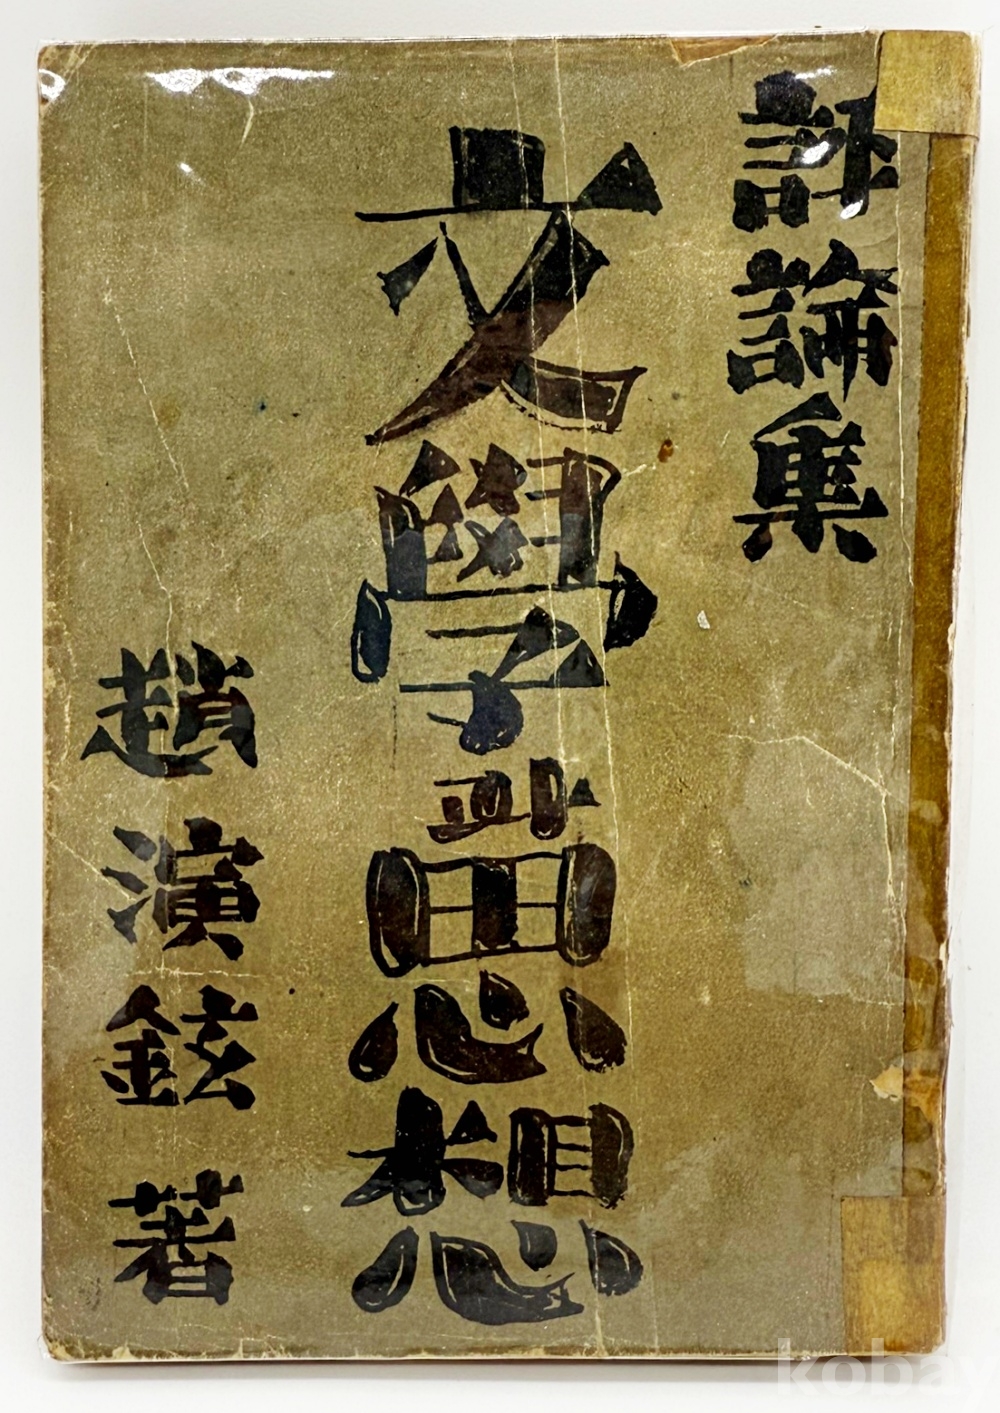 評論集
文學과思想
趙演鉉 著
kobay